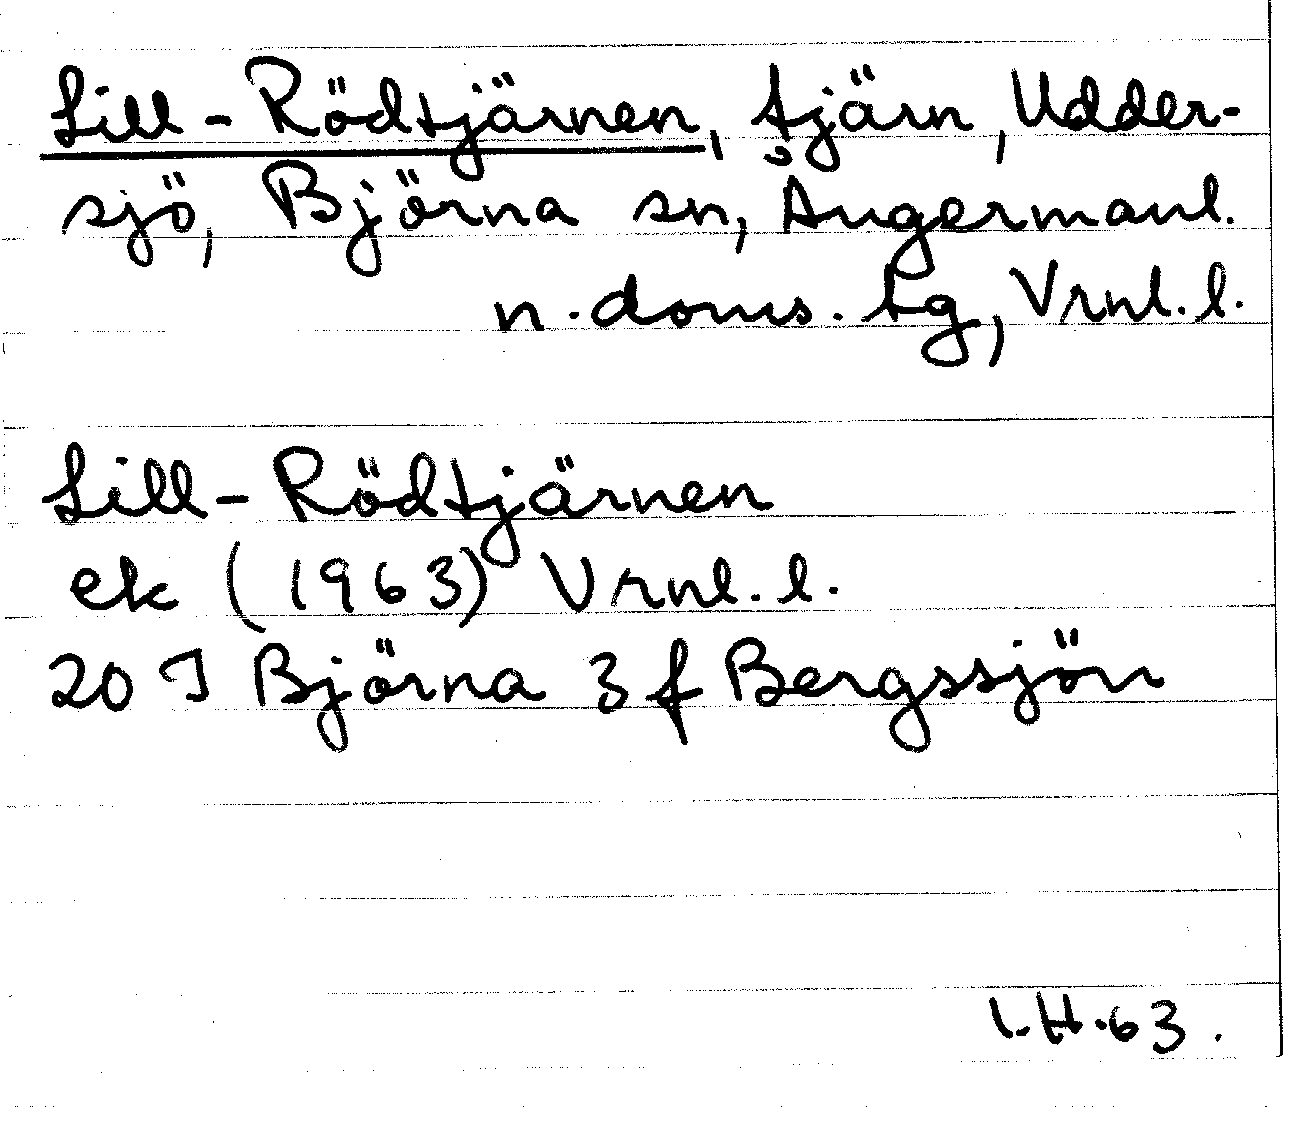 Lill-Rödtjärnen, tjärn, Udder-
sjö, Björna sn, Ångermanl.
n. doms. tg, Vrnl. l.
Lill-Rödtjärnen
ek (1963) Vrnl. l.
20 I Björna 3 f Bergssjön
I.H.63.